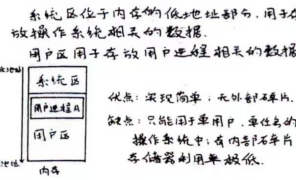 系统区位于内存的低地址部分,用于存
放操作系统相关的数据.
用户区用于存放用户进程相关的数据
系统区
用户进程A
用户区
内存
优点:实现简单,无外部碎片.
缺点:只能用于单用户,单任务的
操作系统中;有内部碎片
存储器利用率极低.